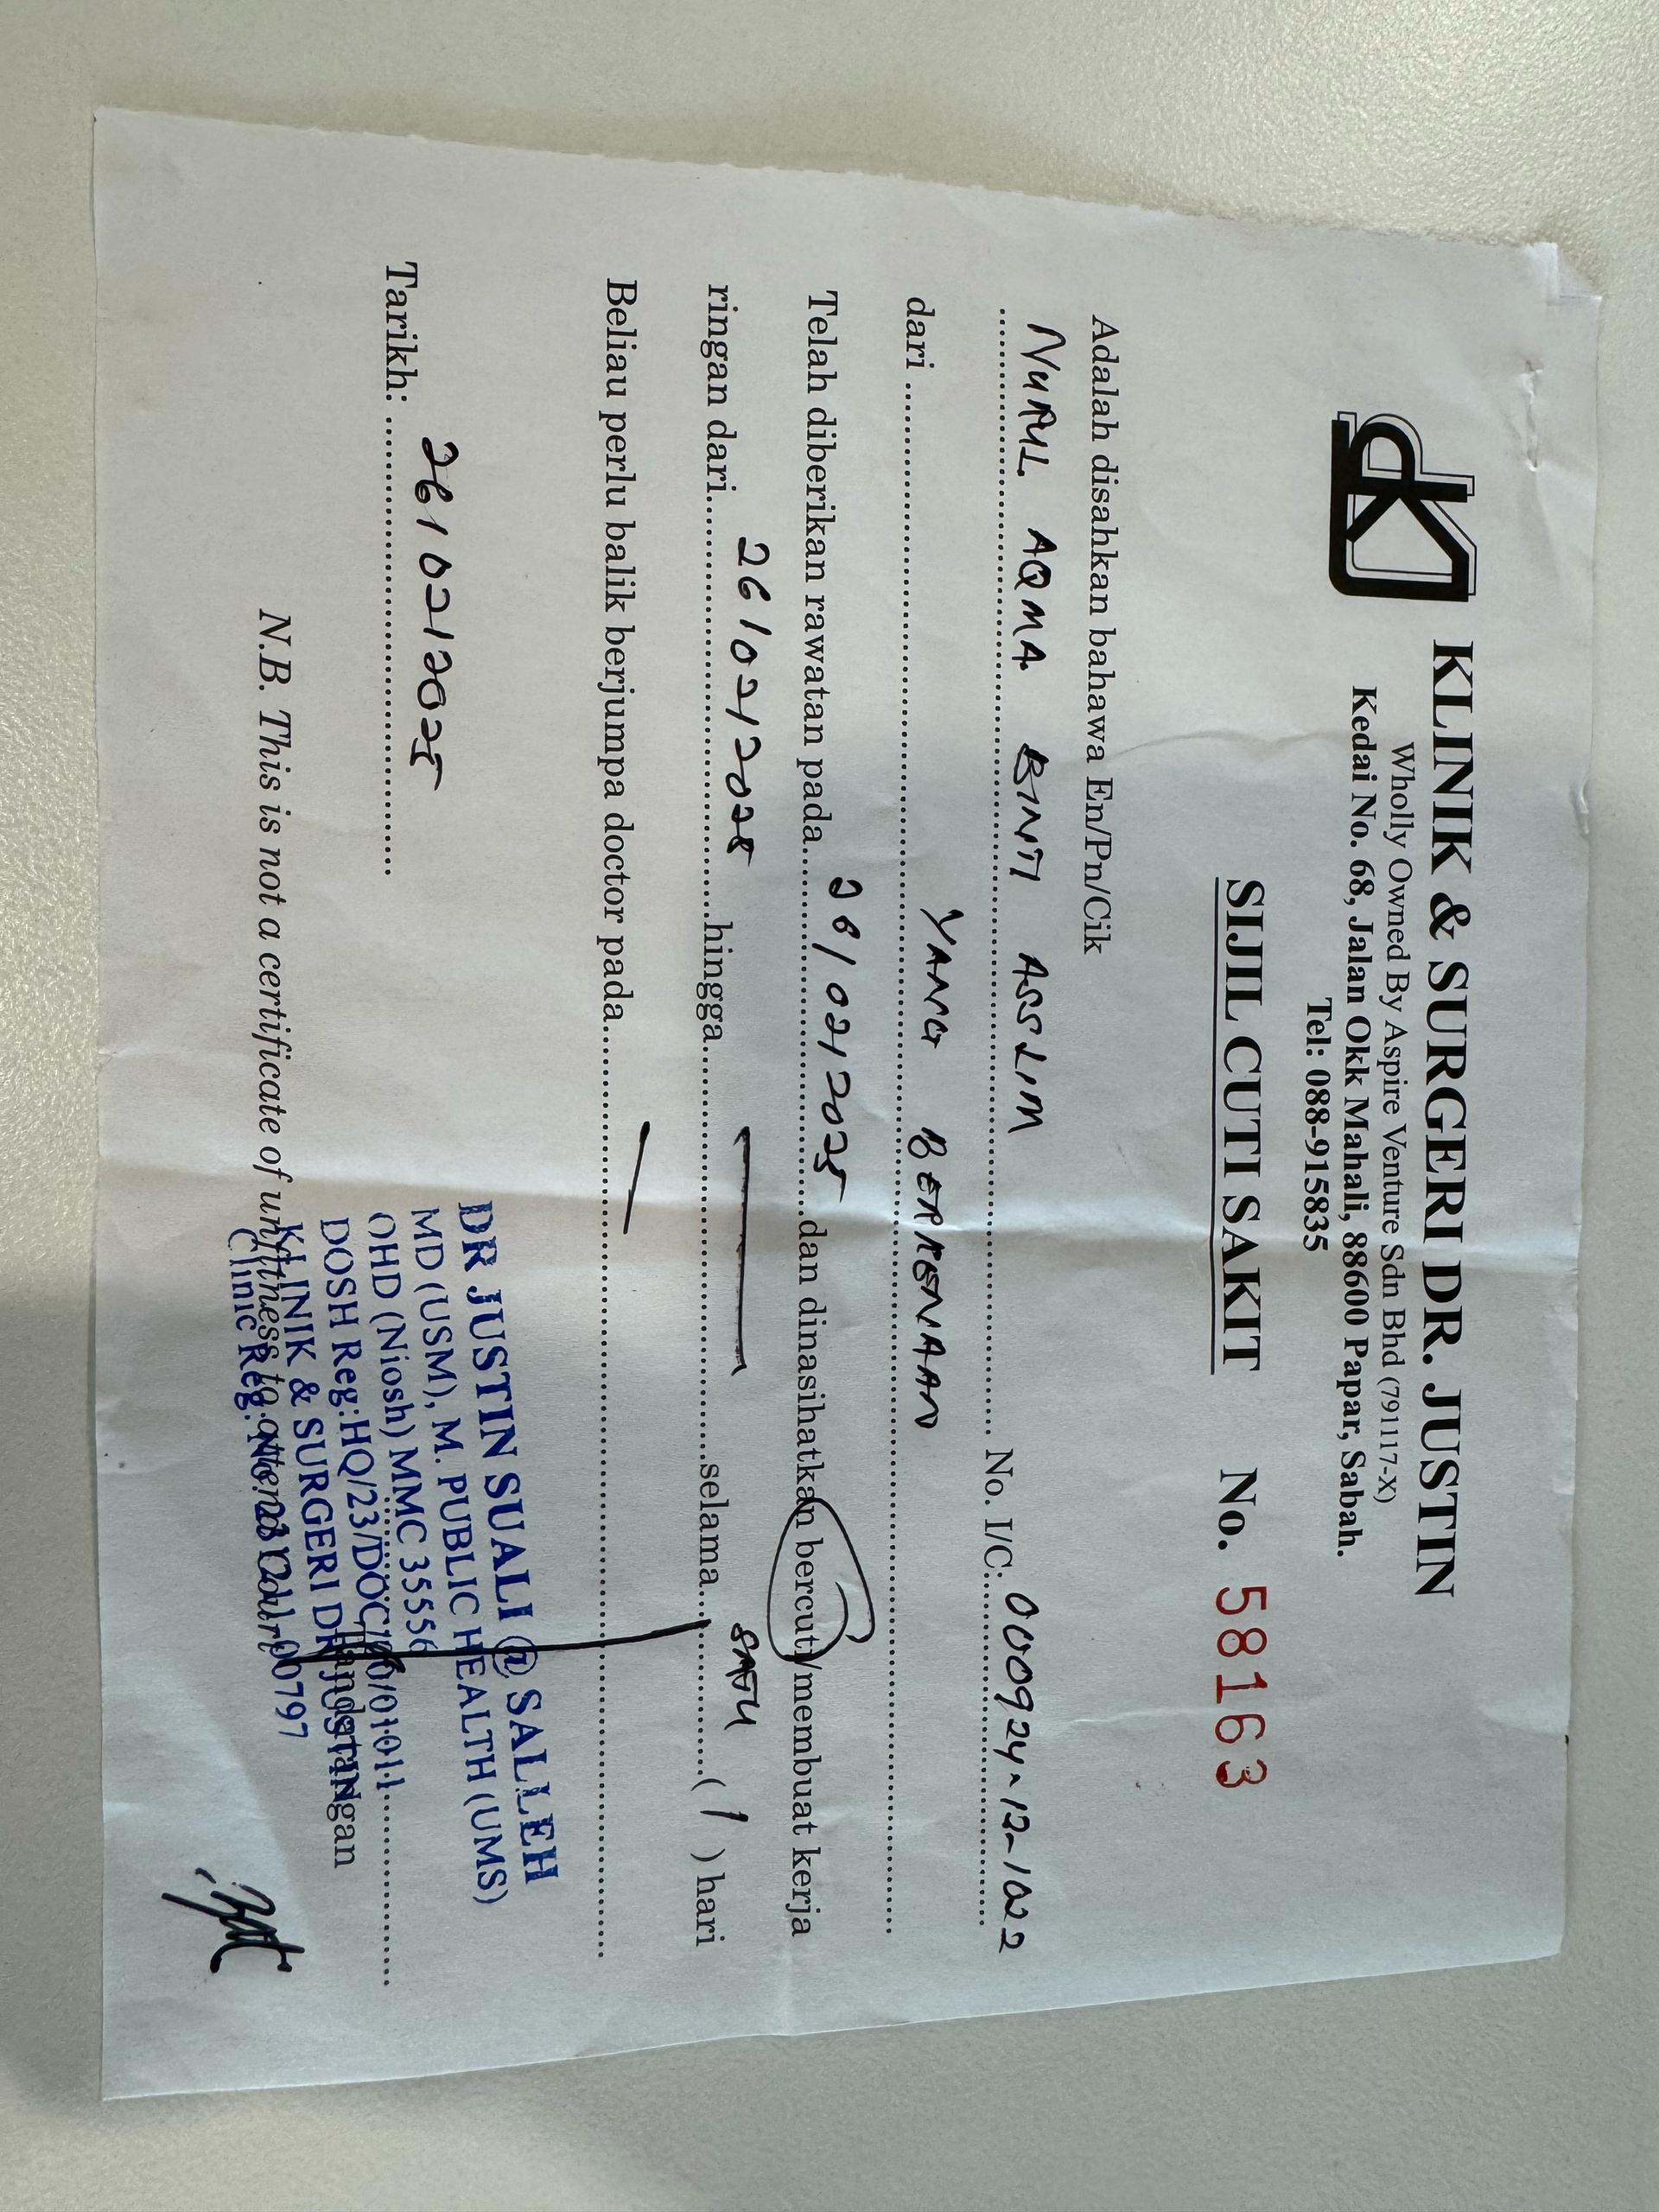 KLINIK & SURGERI DR. JUSTIN
Wholly Owned By Aspire Venture Sdn Bhd (791117-X)
Kedai No. 68, Jalan Okk Mahali, 88600 Papar, Sabah.
Tel: 088-915835
SIJIL CUTI SAKIT No. 58163
Adalah disahkan bahawa En/Pn/Cik
NURUL AQMA BINTI ASSLIM No. I/C: 000924-12-1022
dari YANG BERKENAAN
Telah diberikan rawatan pada 26/02/2025 dan dinasihatkan bercuti/membuat kerja
ringan dari 26/02/2025 hingga — selama SATU ( 1 ) hari
Beliau perlu balik berjumpa doctor pada —
DR JUSTIN SUALI @ SALLEH
MD (USM), M. PUBLIC HEALTH (UMS)
OHD (Niosh) MMC 35556
DOSH Reg:HQ/23/DOC/00/01011
KLINIK & SURGERI DR JUSTIN
Clinic Reg: No. 231211-00797
Tarikh: 26/02/2025
Tandatangan
N.B. This is not a certificate of unfitness to attend Court